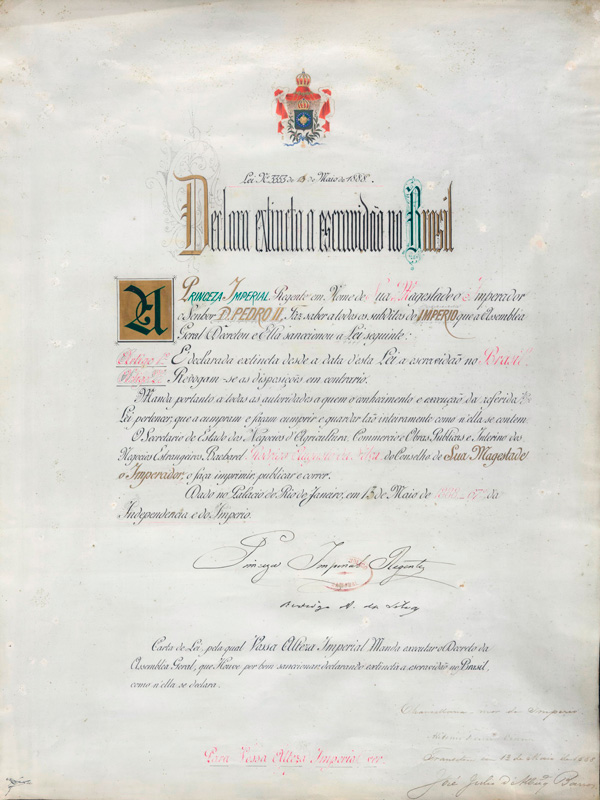 Lei Nº 3353 de 13 de Maio de 1888.
Declara extincta a escravidão no Brasil
A PRINCEZA IMPERIAL Regente em Nome de Sua Magestade o Imperador
o Senhor D. PEDRO II, Faz saber a todos os subditos do IMPERIO que a Assembléa
Geral Decretou e Ella sanccionou a Lei seguinte:
Artigo 1º É declarada extincta desde a data d'esta Lei a escravidão no Brasil.
Artigo 2º Revogam-se as disposições em contrario.
Manda portanto a todas as autoridades a quem o conhecimento e execução da referida
Lei pertencer, que a cumpram e façam cumprir e guardar tão inteiramente como n'ella se contem.
O Secretario de Estado dos Negocios d'Agricultura, Commercio e Obras Publicas e Interino dos
Negocios Estrangeiros, Bacharel Rodrigo Augusto da Silva, do Conselho de Sua Magestade
o Imperador, o faça imprimir, publicar e correr.
Dado no Palacio do Rio de Janeiro, em 13 de Maio de 1888, 67º da
Independencia e do Imperio.
Princeza Imperial Regente
Rodrigo A. da Silva
Carta de Lei, pela qual Vossa Alteza Imperial Manda executar o Decreto da
Assembléa Geral, que Houve por bem sanccionar declarando extincta a escravidão no Brasil,
como n'ella se declara.
Chancellaria mor do Imperio
Transitou em 13 de Maio de 1888
José Julio d'Albuqº Barros
Para Vossa Alteza Imperial ver.